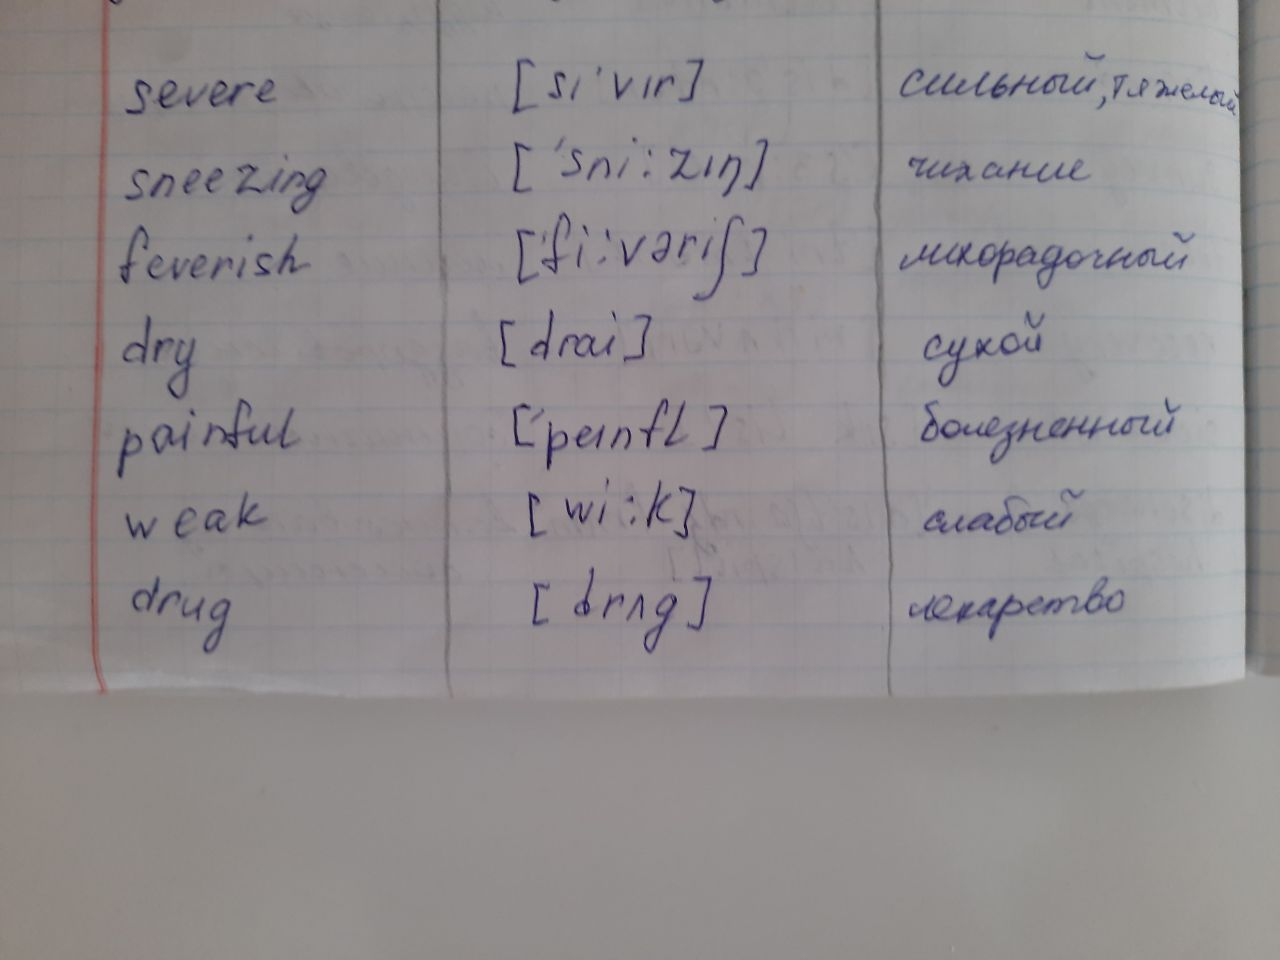 severe [sı'vır] сильный, тяжелый
sneezing ['sni:zıŋ] чихание
feverish ['fi:vəriʃ] лихорадочный
dry [drai] сухой
painful ['peınfl] болезненный
weak [wi:k] слабый
drug [drʌg] лекарство